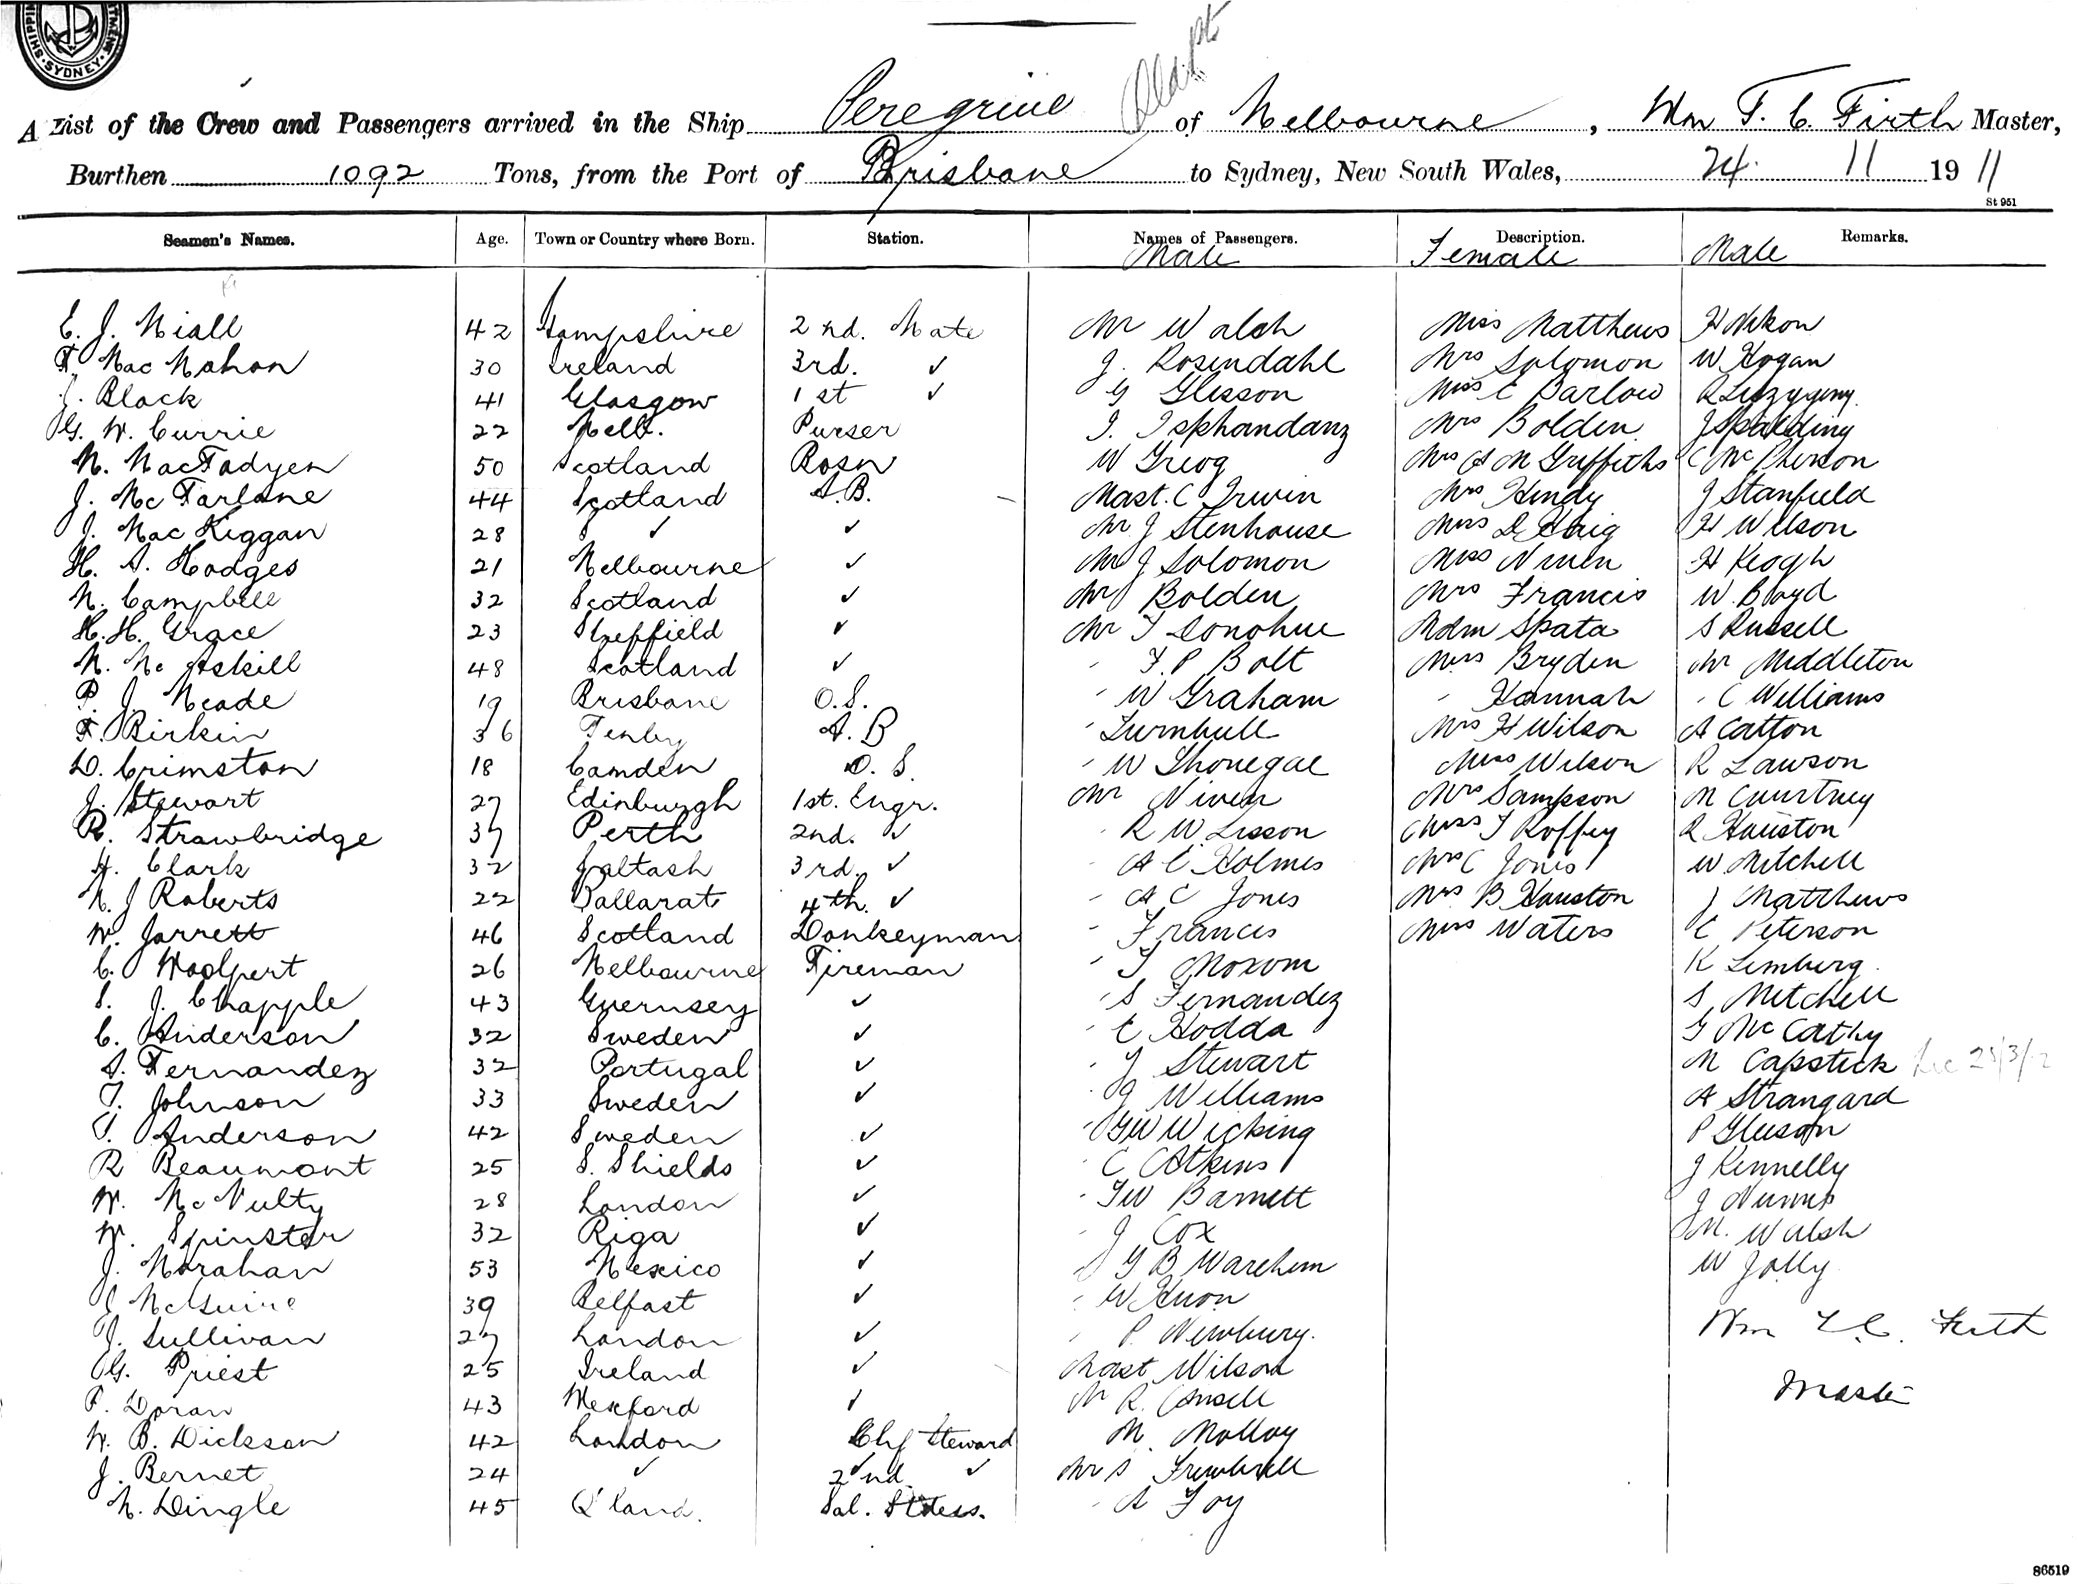 SHIPPING SYDNEY
A List of the Crew and Passengers arrived in the Ship Peregrine of Melbourne, Wm F. C. Firth Master,
Burthen 1092 Tons, from the Port of Brisbane to Sydney, New South Wales, 24. 11 1911
St 951
Seamen's Names. Age. Town or Country where Born. Station. Names of Passengers. Description. Remarks.
Male Female Male
E. J. Niall 42 Hampshire 2nd. Mate Mr Walsh Miss Matthews H Nikon
F. MacMahon 30 Ireland 3rd. ✓ J. Rosendahl Mrs Solomon W Hogan
J. Black 41 Glasgow 1st ✓ G Glesson Miss C Barlow R
G. W. Currie 22 Melb. Purser I. Isphandanz Mrs Bolden J Spalding
N. MacFadyen 50 Scotland Bosn W Greog Mrs A M Griffiths C McPherson
J. McFarlane 44 Scotland A.B. Mast. C Irwin Mrs Hendy J Stanfield
J. MacKiggan 28 ✓ ✓ Mr J Stenhouse Miss D Haig H Wilson
H. A. Hodges 21 Melbourne ✓ Mr J Solomon Miss Niven H Keogh
N. Campbell 32 Scotland ✓ Mr Bolden Mrs Francis W. Boyd
H. H. Grace 23 Sheffield ✓ Mr T Donohue Mdm Spata S Russell
N. McAskill 48 Scotland ✓ " F. P. Bolt Miss Bryden Mr Middleton
P. J. Meade 19 Brisbane O.S. " W Graham " Hannah " C Williams
F. Birkin 36 Tenby A.B " Turnbull Mrs H Wilson A Catton
D. Crimston 18 Camden O.S. " W Thonegal Miss Wilson R Lawson
J. Stewart 27 Edinburgh 1st. Engr. Mr Niven Mrs Sampson M Courtney
R. Strawbridge 37 Perth 2nd. ✓ " R W Lisson Miss T Roffey R Hauston
H. Clark 32 Saltash 3rd. ✓ " A E Holmes Mrs C Jones W Mitchell
N. J Roberts 22 Ballarat 4th. ✓ " A C Jones Mrs B Hauston J Matthews
W. Jarrett 46 Scotland Donkeyman " Francis Miss Waters C Peterson
C. Woolpert 26 Melbourne Fireman " T Moxom K Lemberg
S. J. Chapple 43 Guernsey ✓ " S Fernandez S Mitchell
C. Anderson 32 Sweden ✓ " E Hodda G McCathy
A. Fernandez 32 Portugal ✓ " J Stewart M Capstick
T. Johnson 33 Sweden ✓ " J Williams A Strangard
T. Anderson 42 Sweden ✓ " G W Wicking P Gleeson
R Beaumont 25 S. Shields ✓ " C Atkins J Kennelly
W. McNulty 28 London ✓ " T W Barnett J Nunns
W. Spinster 32 Riga ✓ " J Cox M. Walsh
J. Morahan 53 Mexico ✓ " G B Warehem W Jolly
J McGuire 39 Belfast ✓ " W Huon
J. Sullivan 27 London ✓ " P. Newbury.
Wm F. C. Firth
G. Priest 25 Ireland ✓ Mast Wilson
Master
P. Doran 43 Wexford ✓ Mr R. Consell
W. B. Dickson 42 London Chf Steward M. Molloy
J. Bernet 24 ✓ 2nd ✓ Mr S
N. Dingle 45 Q'land. Sal. Stdess. " A Foy
86519